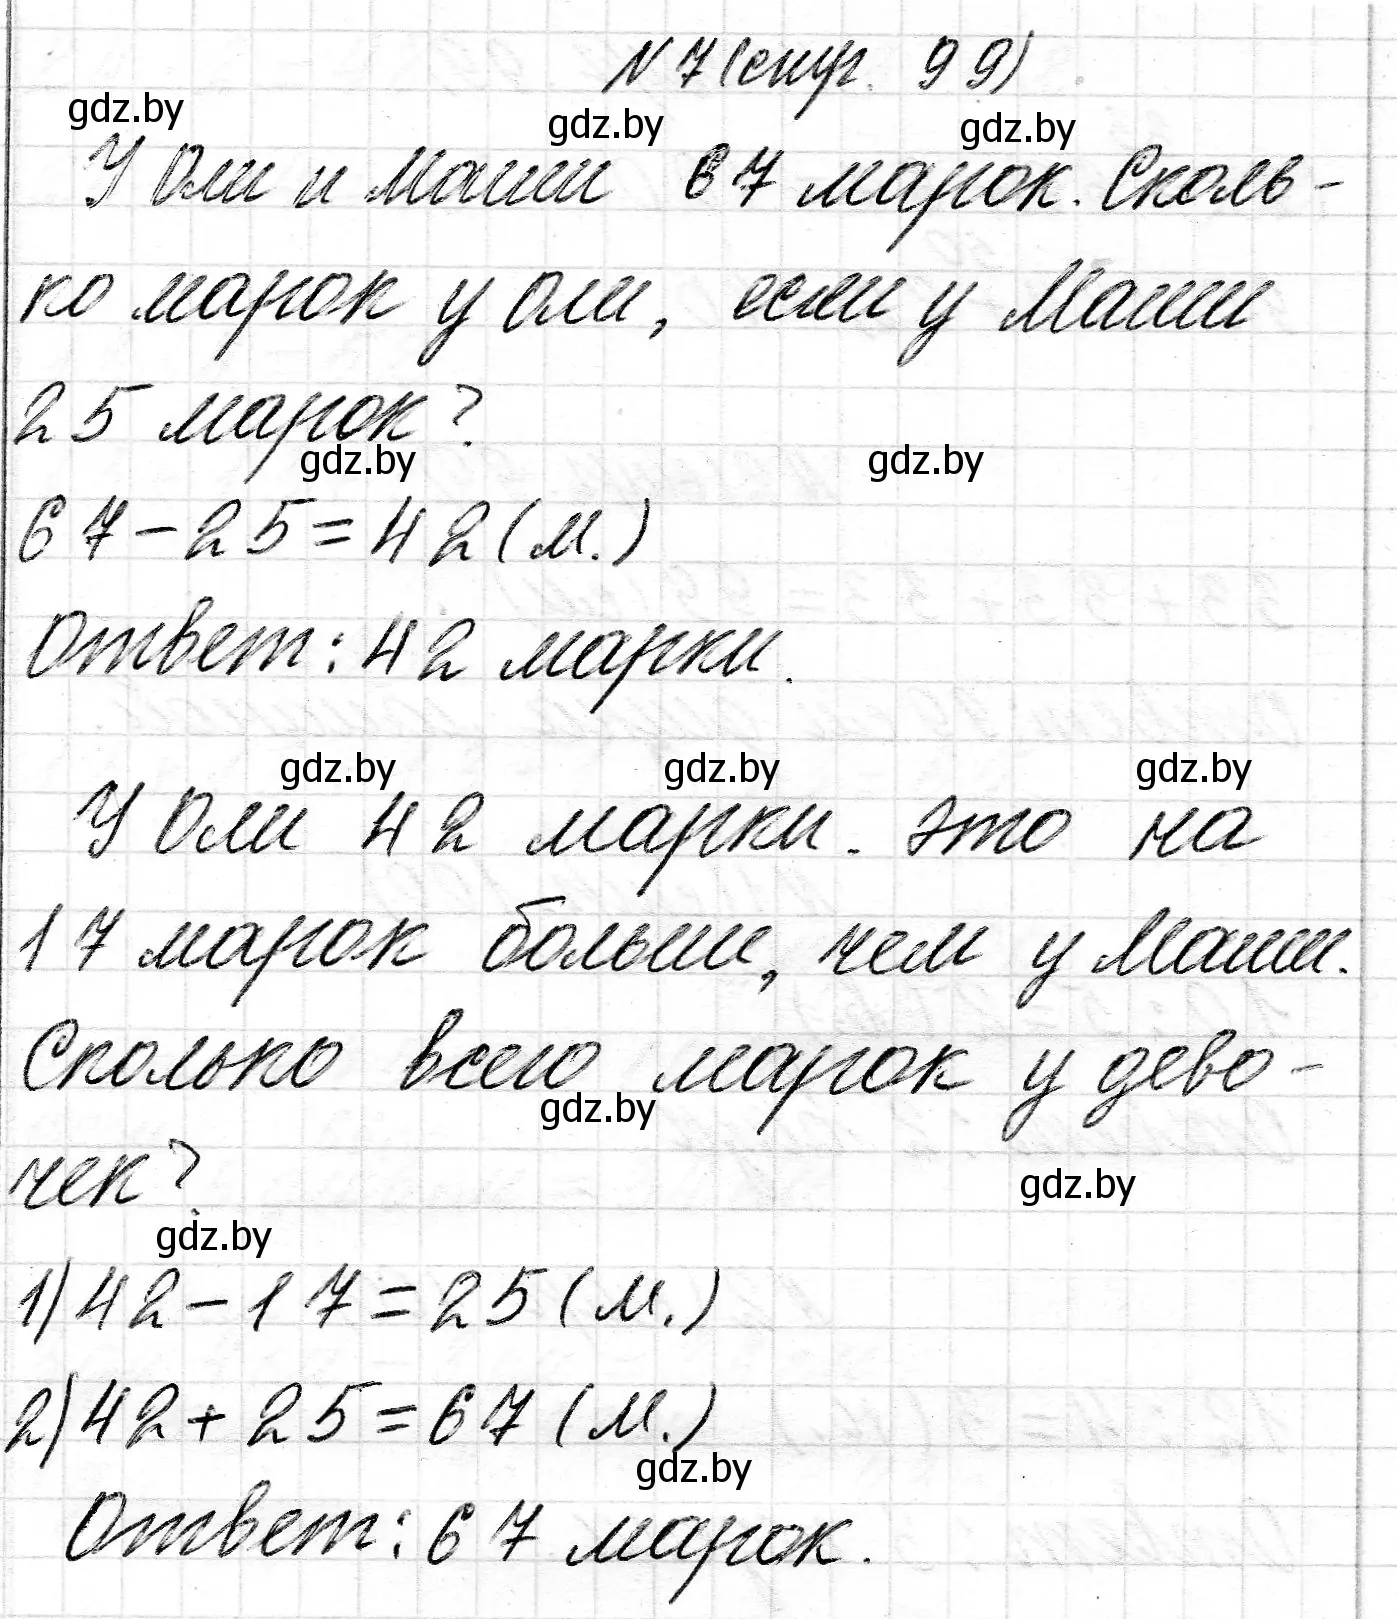 N 7 (стр. 99)
gdz.by gdz.by gdz.by
У Оли и Маши 67 марок. Сколь-
ко марок у Оли, если у Маши
25 марок?
gdz.by gdz.by
67-25=42(м.)
Ответ: 42 марки.
gdz.by gdz.by gdz.by
У Оли 42 марки. Это на
17 марок больше, чем у Маши.
Сколько всего марок у дево-
gdz.by
чек?
gdz.by
gdz.by
1) 42-17=25(м.)
2) 42+25=67(м.)
gdz.by
Ответ: 67 марок.